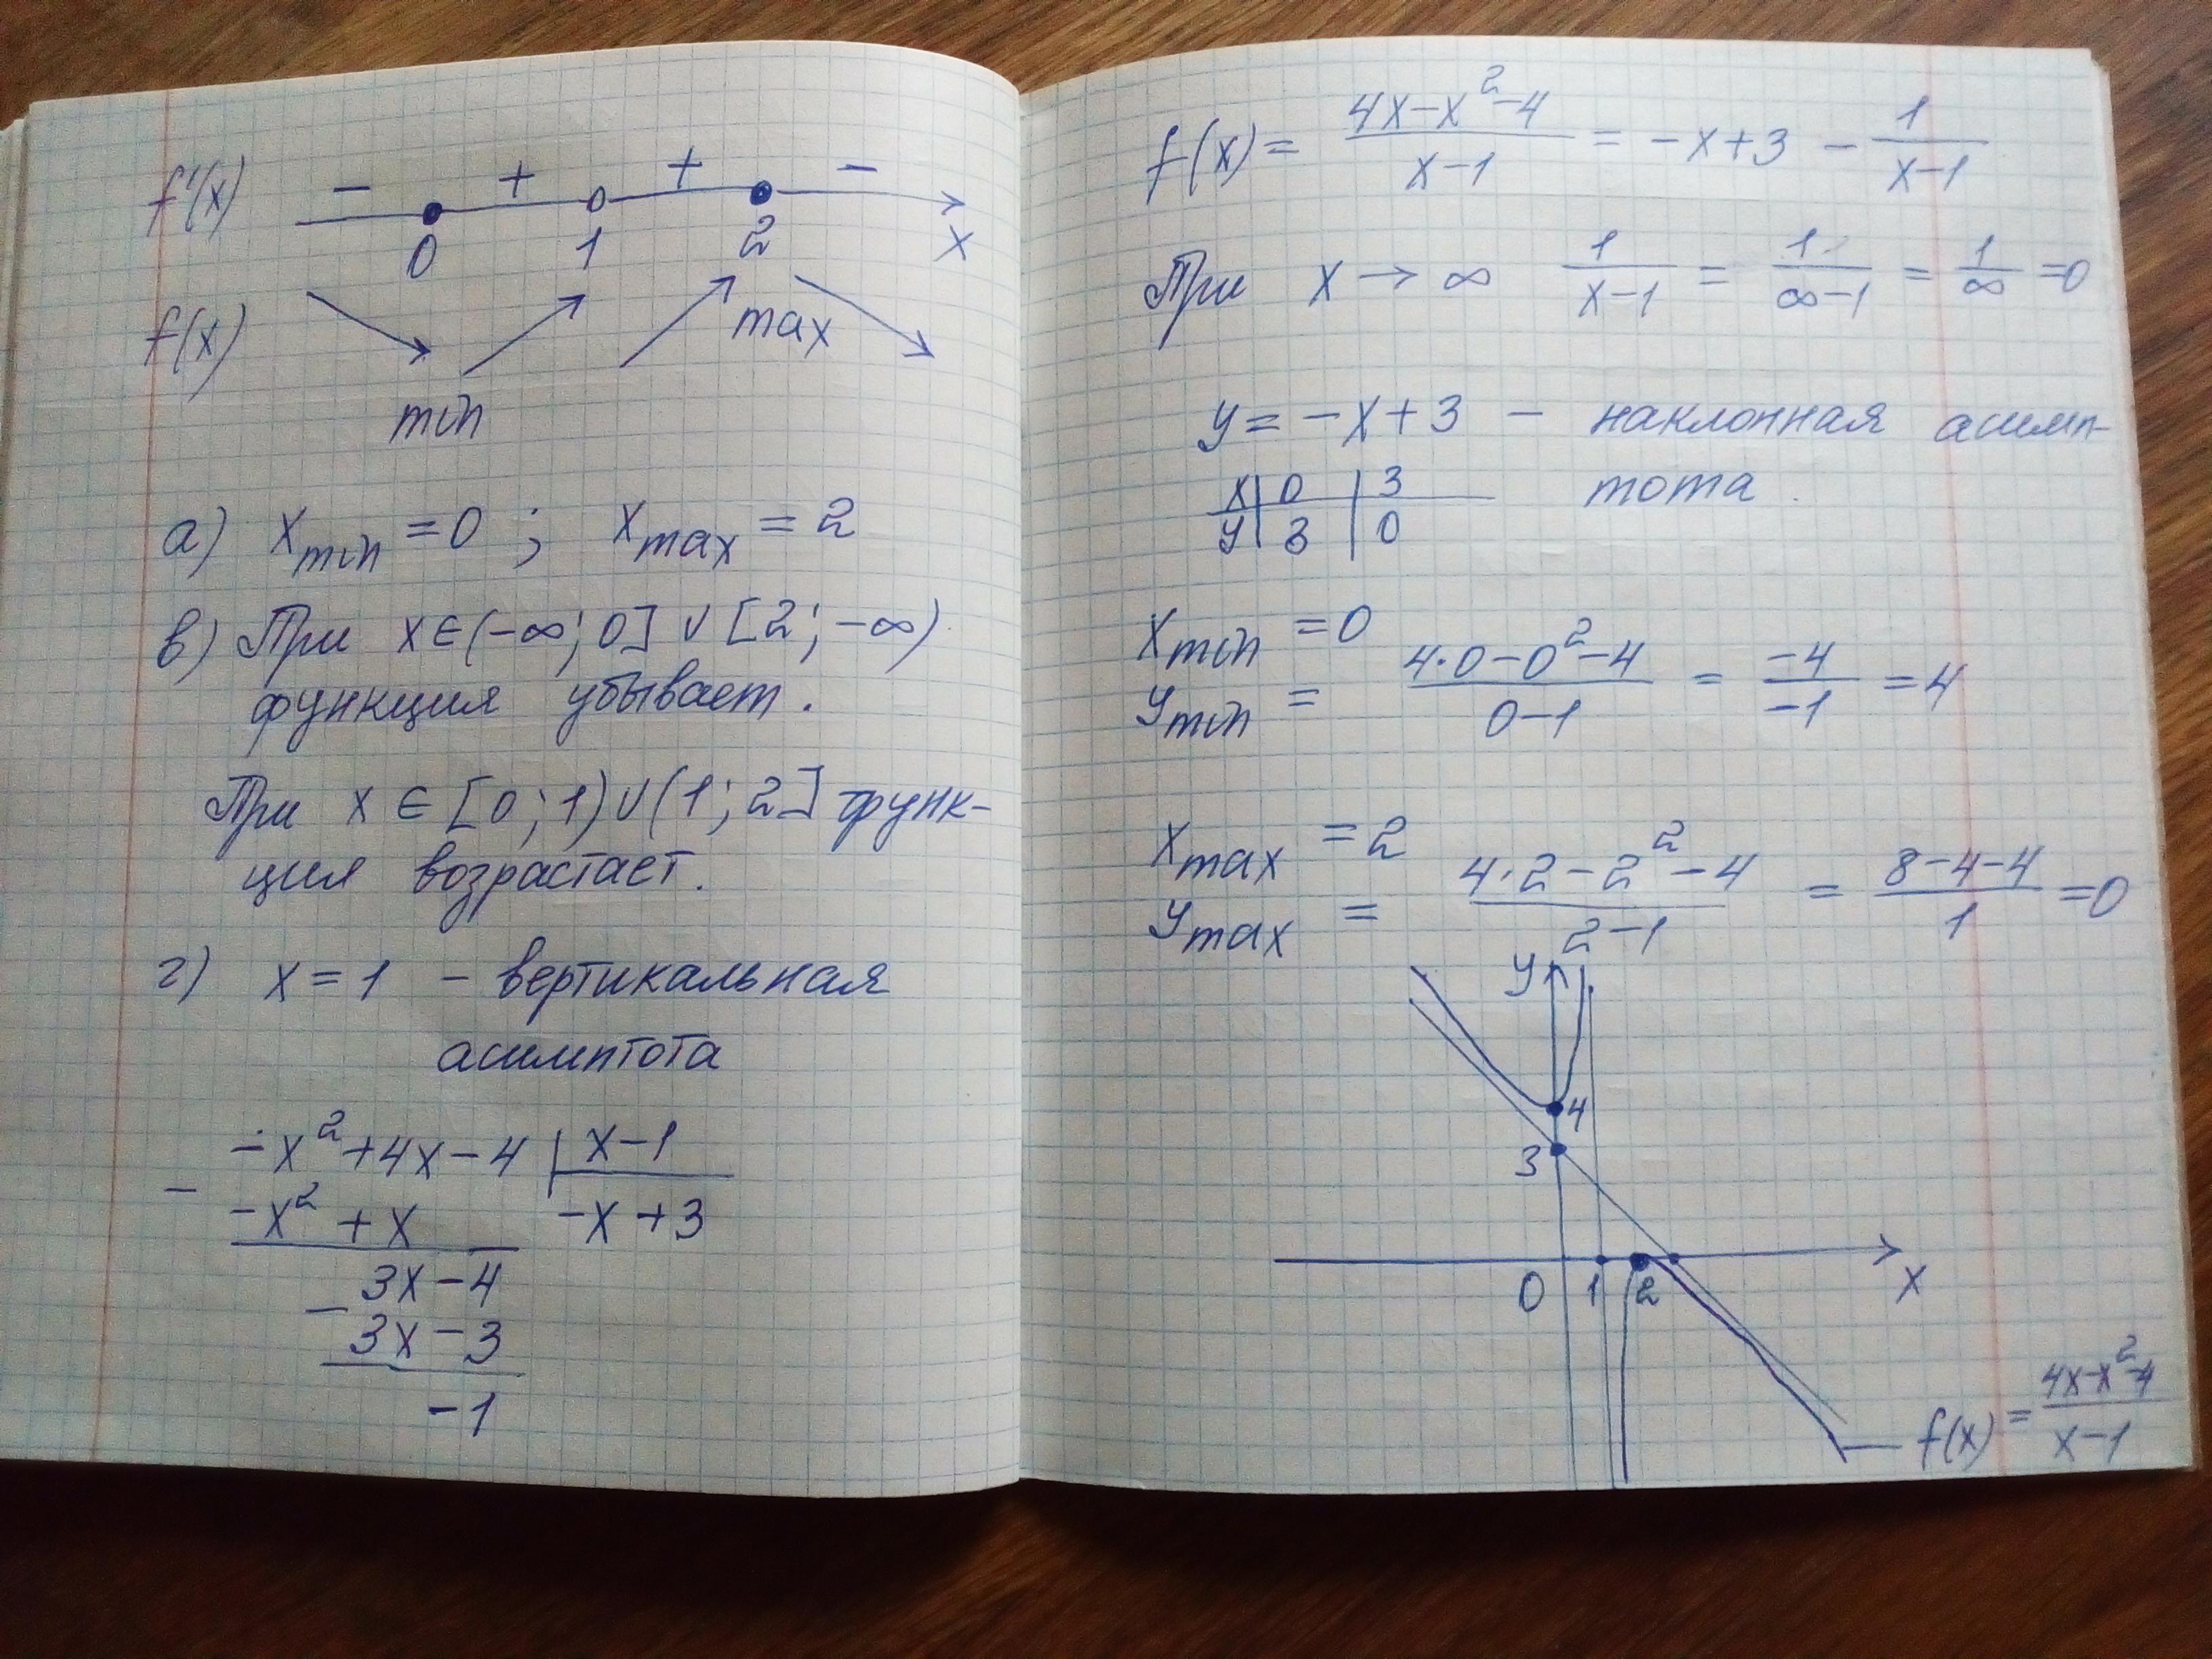 f'(x) − + + −
0 1 2 x
f(x) max
min
а) x_min = 0 ; x_max = 2
в) При x ∈ (−∞; 0] ∪ [2; −∞)
функция убывает.
При x ∈ [0; 1) ∪ (1; 2] функ-
ция возрастает.
г) x = 1 – вертикальная
асимптота
−x² + 4x − 4 | x − 1
− −x² + x −x + 3
3x − 4
− 3x − 3
−1
f(x) = (4x − x² − 4)/(x − 1) = −x + 3 − 1/(x − 1)
При x → ∞ 1/(x − 1) = 1/(∞ − 1) = 1/∞ = 0
y = −x + 3 – наклонная асимп-
тота.
x | 0 | 3
y | 3 | 0
x_min = 0
y_min = (4·0 − 0² − 4)/(0 − 1) = −4/−1 = 4
x_max = 2
y_max = (4·2 − 2² − 4)/(2 − 1) = (8 − 4 − 4)/1 = 0
y
4
3
0 1 2 x
f(x) = (4x − x² − 4)/(x − 1)